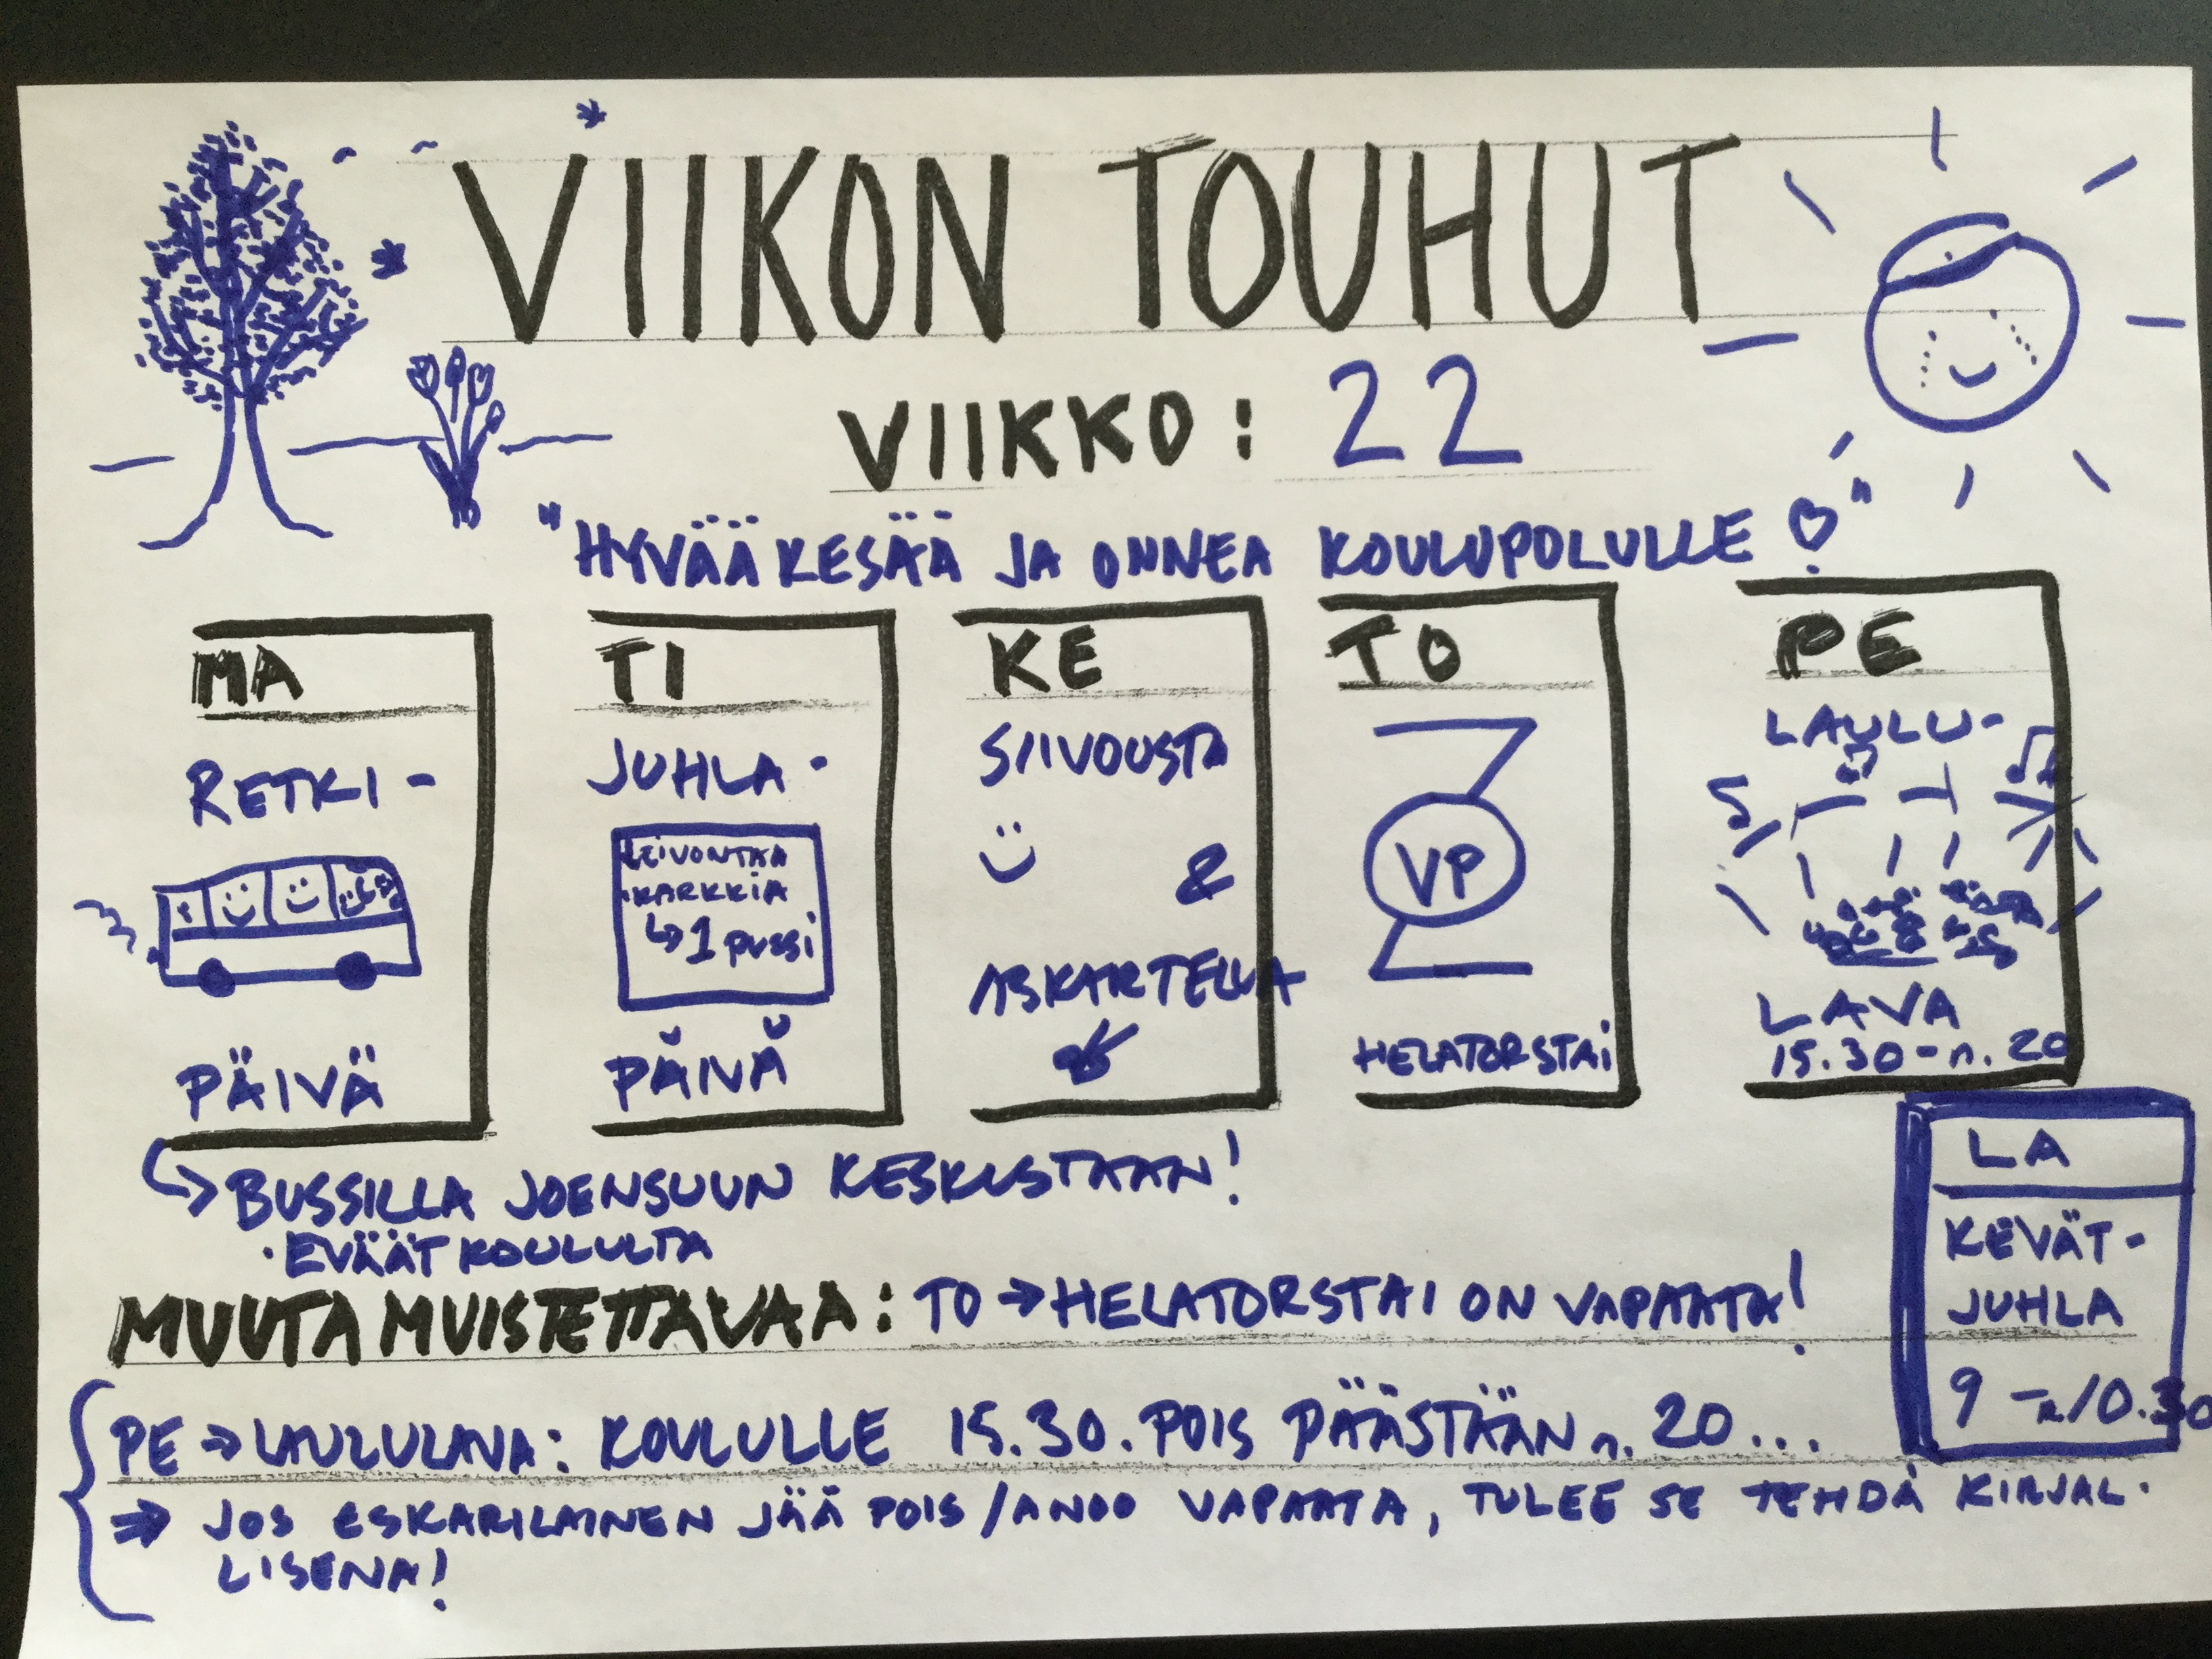 VIIKON TOUHUT
VIIKKO: 22
"HYVÄÄ KESÄÄ JA ONNEA KOULUPOLULLE"
MA
RETKI-
PÄIVÄ
TI
JUHLA-
LEIVONTAA
KARKKIA
↳ 1 pussi
PÄIVÄ
KE
SIIVOUSTA
&
ASKARTELUA
TO
Z
VP
Z
HELATORSTAI
PE
LAULU-
LAVA
15.30-n.20
↳ BUSSILLA JOENSUUN KESKUSTAAN!
· EVÄÄT KOULULTA
LA
KEVÄT-
JUHLA
9-n10.30
MUUTA MUISTETTAVAA: TO → HELATORSTAI ON VAPAATA!
PE → LAULULAVA: KOULULLE 15.30. POIS PÄÄSTÄÄN n. 20...
⇒ JOS ESKARILAINEN JÄÄ POIS/ANOO VAPAATA, TULEE SE TEHDÄ KIRJAL-
LISENA!